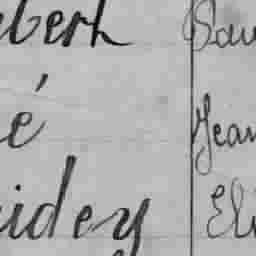 bert Pau
é Jean
idey Eli